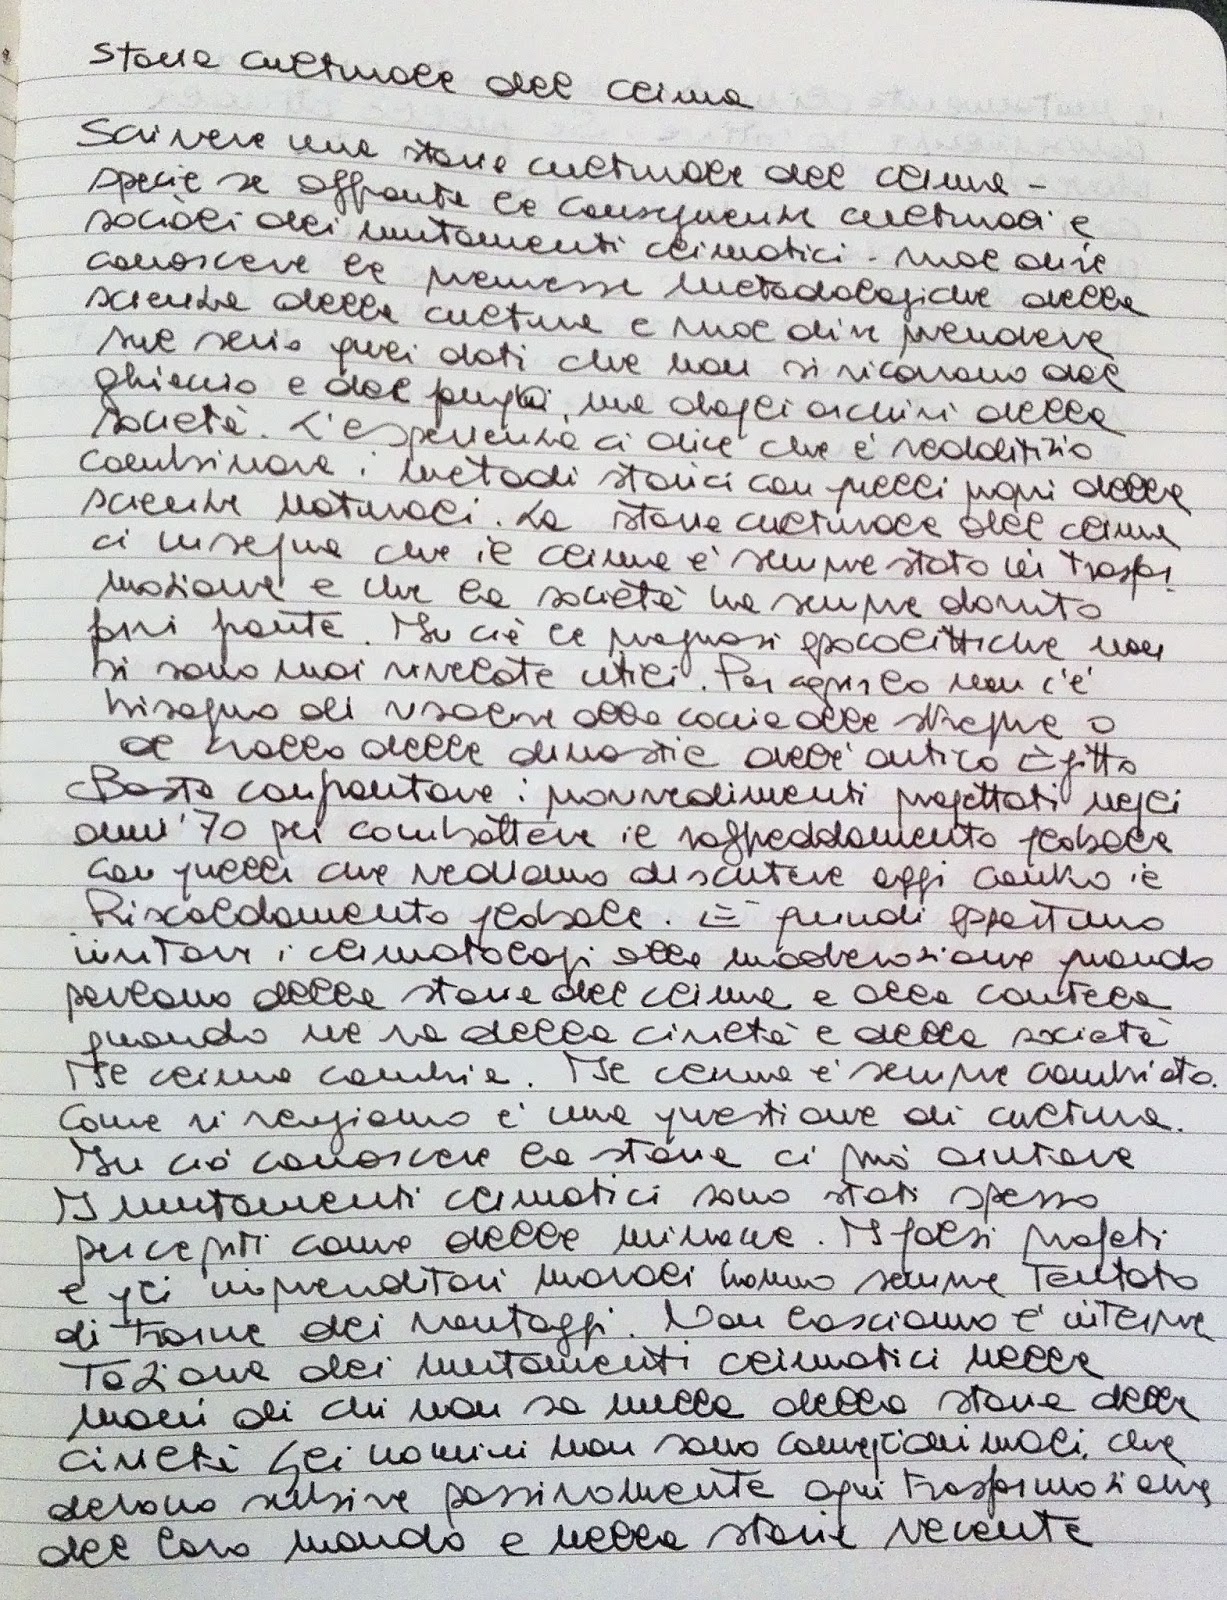 Storia culturale del clima
Scrivere una storia culturale del clima -
specie se affronta le conseguenze culturali e
sociali dei mutamenti climatici - vuol dire
conoscere le premesse metodologiche della
scienza della cultura e vuol dire prendere
sul serio quei dati che non si ricavano dal
ghiaccio e dai funghi, ma dagli archivi della
società. L'esperienza ci dice che è redditizio
combinare i metodi storici con quelli propri delle
scienze naturali. La storia culturale del clima
ci insegna che il clima è sempre stato in trasfor
mazione e che la società ha sempre dovuto
farvi fronte. In ciò le prognosi apocalittiche non
si sono mai rivelate utili. Per capirlo non c'è
bisogno di risalire alla caccia alle streghe o
al crollo delle dinastie dell'antico Egitto
Basta confrontare i provvedimenti progettati negli
anni '70 per combattere il raffreddamento globale
con quelli che vediamo discutere oggi contro il
Riscaldamento globale. È quindi opportuno
invitare i climatologi alla moderazione quando
parlano della storia del clima e alla cautela
quando ne va della civiltà e della società
Il clima cambia. Il clima è sempre cambiato.
Come vi reagiamo è una questione di cultura.
In ciò conoscere la storia ci può aiutare
I mutamenti climatici sono stati spesso
percepiti come delle minacce. I falsi profeti
e gli imprenditori morali hanno sempre tentato
di trarne dei vantaggi. Non lasciamo l'interpre
tazione dei mutamenti climatici nelle
mani di chi non sa nulla della storia della
civiltà Gli uomini non sono animali, che
devono subire passivamente ogni trasformazione
del loro mondo e nella storia recente